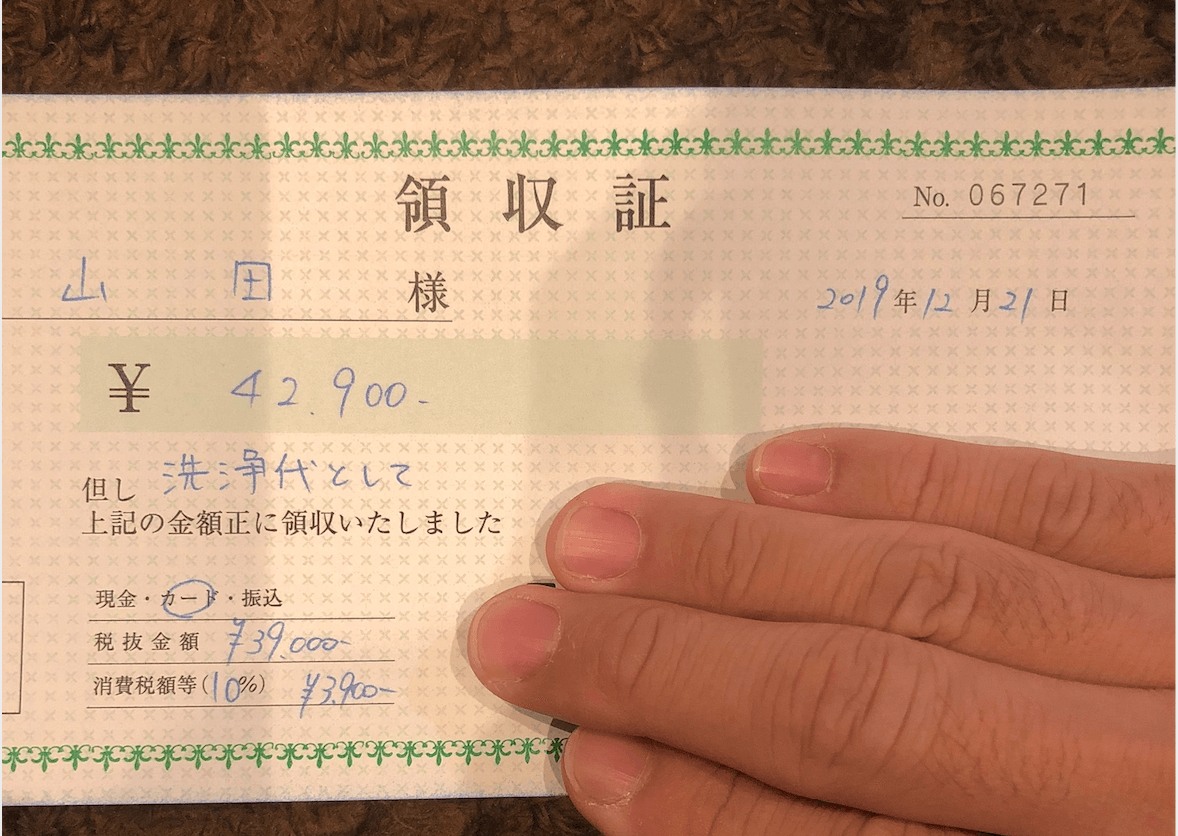 領収証
No. 067271
山田 様
2019年12月21日
¥ 42.900-
但し 洗浄代として
上記の金額正に領収いたしました
現金・カード・振込
税抜金額 ¥39.000-
消費税額等(10%) ¥3.900-